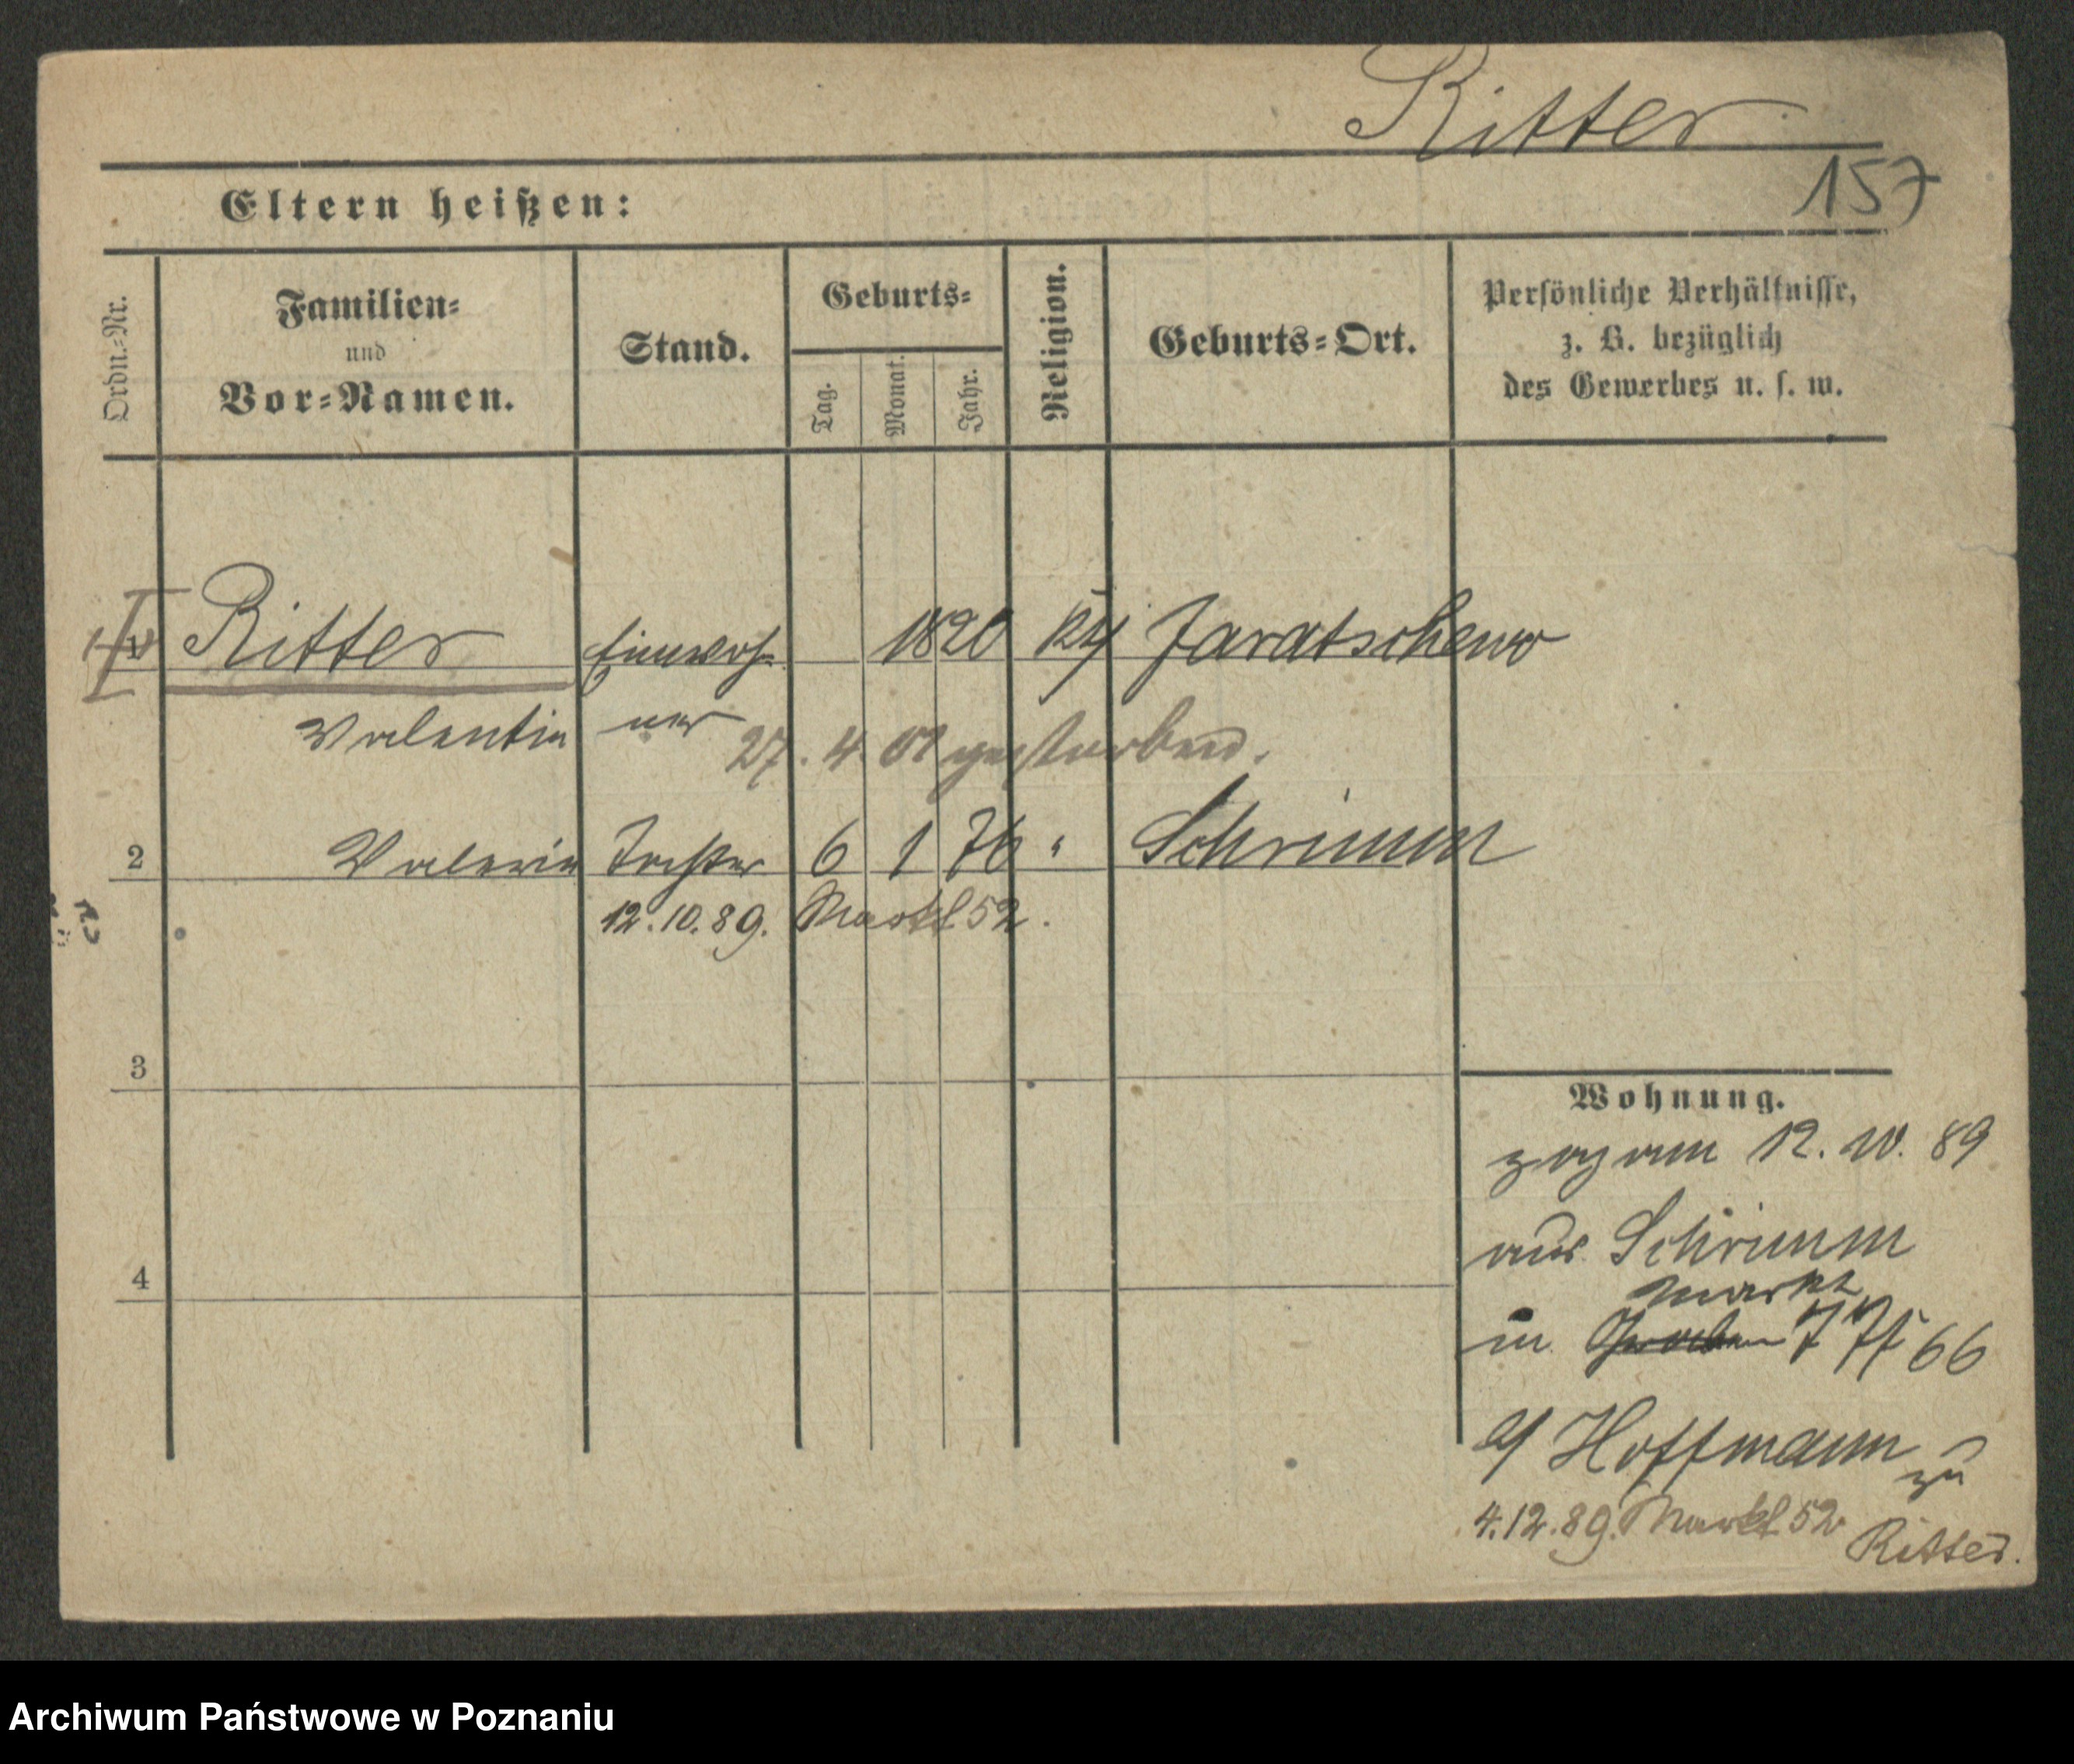 Ritter
157
Eltern heißen:
Ordn.-Nr.
Familien-
und
Vor-Namen.
Stand.
Geburts-
Tag.
Monat.
Jahr.
Religion.
Geburts-Ort.
Persönliche Verhältnisse,
z. B. bezüglich
des Gewerbes u. s. w.
Ritter Einwoh- 1820 Jaratschewo
Valentin ner
27. 4. 01 gestorben.
2 Valerie Tochter 6 1 76 " Schrimm
12.10.89. Markt 52.
3
Wohnung.
zog am 12. 10. 89
aus Schrimm
4
Markt
in 66
Hoffmann
zu
4.12.89. Markt 52
Ritter.
Archiwum Państwowe w Poznaniu